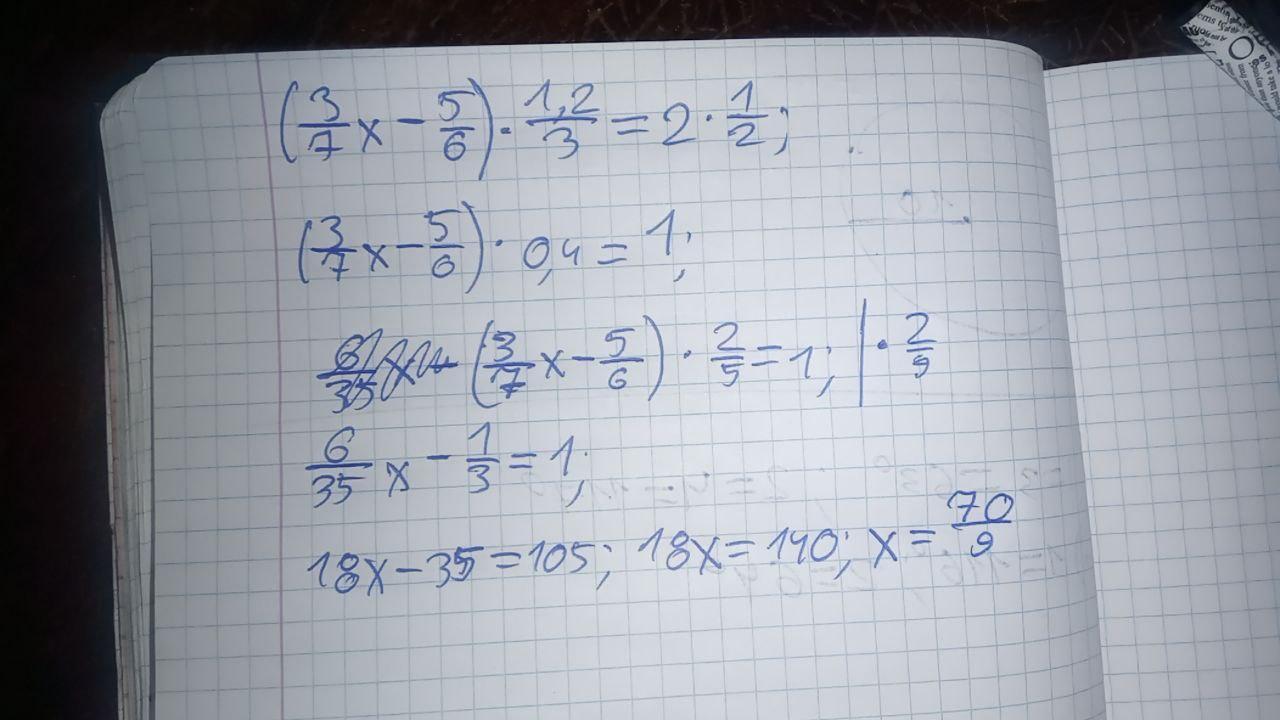 (3/7 x - 5/6) · 1,2/3 = 2 · 1/2;
(3/7 x - 5/6) · 0,4 = 1;
(3/7 x - 5/6) · 2/5 = 1; | · 2/5
6/35 x - 1/3 = 1;
18x - 35 = 105; 18x = 140; x = 70/9